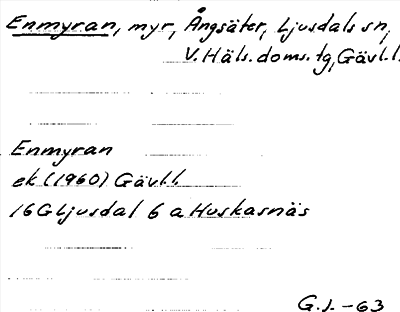 Enmyran, myr, Ångsäter, Ljusdals sn,
V. Häls. doms. tg, Gävl.l.
Enmyran
ek (1960) Gävl.l.
16G Ljusdal 6 a Huskasnäs
G.J. -63